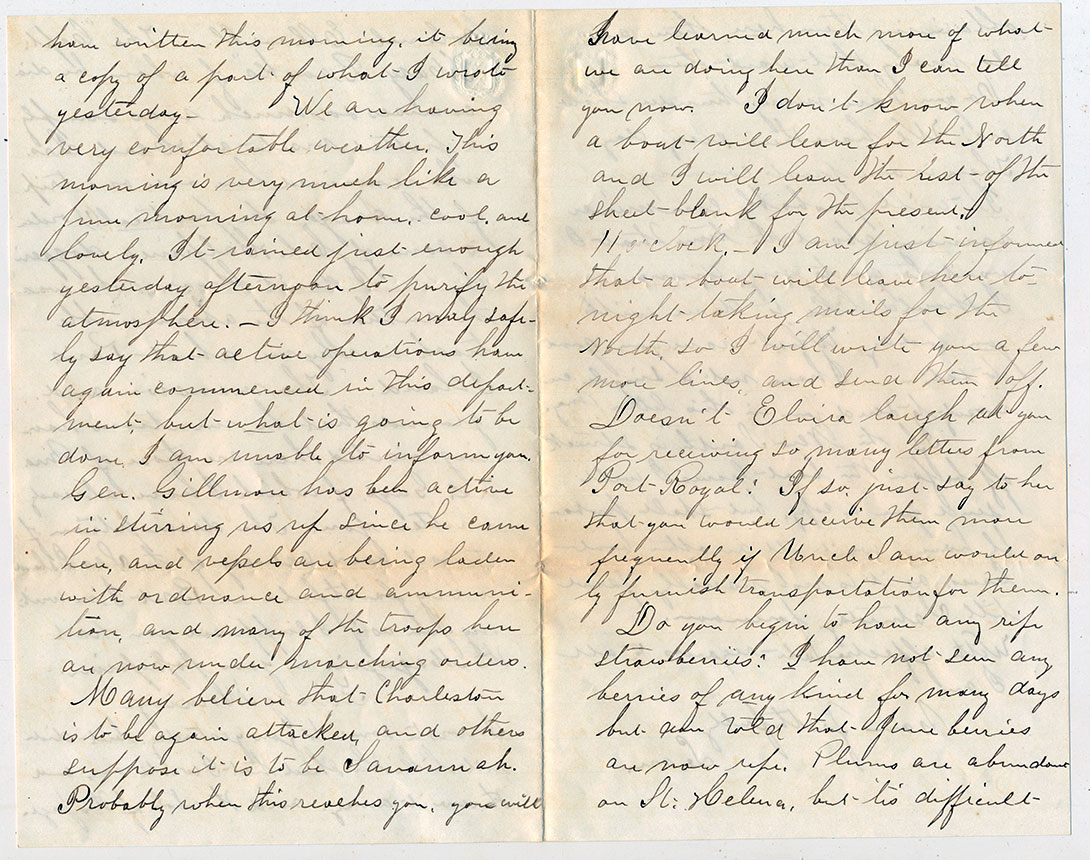 have written this morning, it being
a copy of a part of what I wrote
yesterday- We are having
very comfortable weather. This
morning is very much like a
June morning at home, cool, and
lovely. It rained just enough
yesterday afternoon to purify the
atmosphere. – I think I may safe-
ly say that active operations have
again commenced in this depart-
ment, but what is going to be
done, I am unable to inform you.
Gen. Gillmore has been active
in stirring us up since he came
here, and vessels are being laden
with ordnance and ammuni-
tion, and many of the troops here
are now under marching orders.
Many believe that Charleston
is to be again attacked, and others
suppose it is to be Savannah.
Probably when this reaches you, you will
have learned much more of what
we are doing here than I can tell
you now. I don't know when
a boat will leave for the North
and I will leave the rest of the
sheet blank for the present.
11 o'clock. – I am just informed
that a boat will leave here to-
night taking mails for the
North, so I will write you a few
more lines and send them off.
Doesn't Elvira laugh at you
for receiving so many letters from
Port Royal? If so, just say to her
that you would receive them more
frequently if Uncle Sam would on
ly furnish transportation for them.
Do you begin to have any ripe
strawberries? I have not seen any
berries of any kind for many days
but am told that June berries
are now ripe. Plums are abundant
on St. Helena, but tis difficult